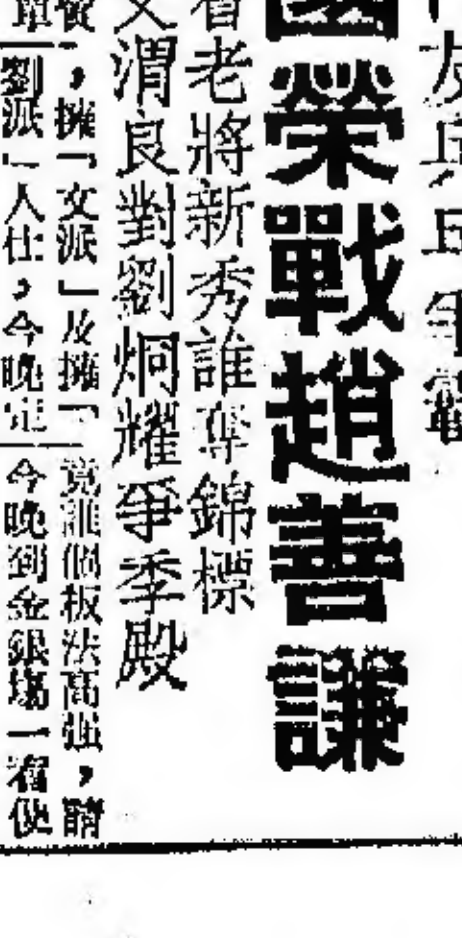 友兵乓爭霸
國榮戰趙善謙
看老將新秀誰奪錦標
文渭良對劉炯耀爭季殿
擁「文派」及擁「
劉派」人仕,今晚定
竟誰個板法高强,請
今晚到金銀塲一看便